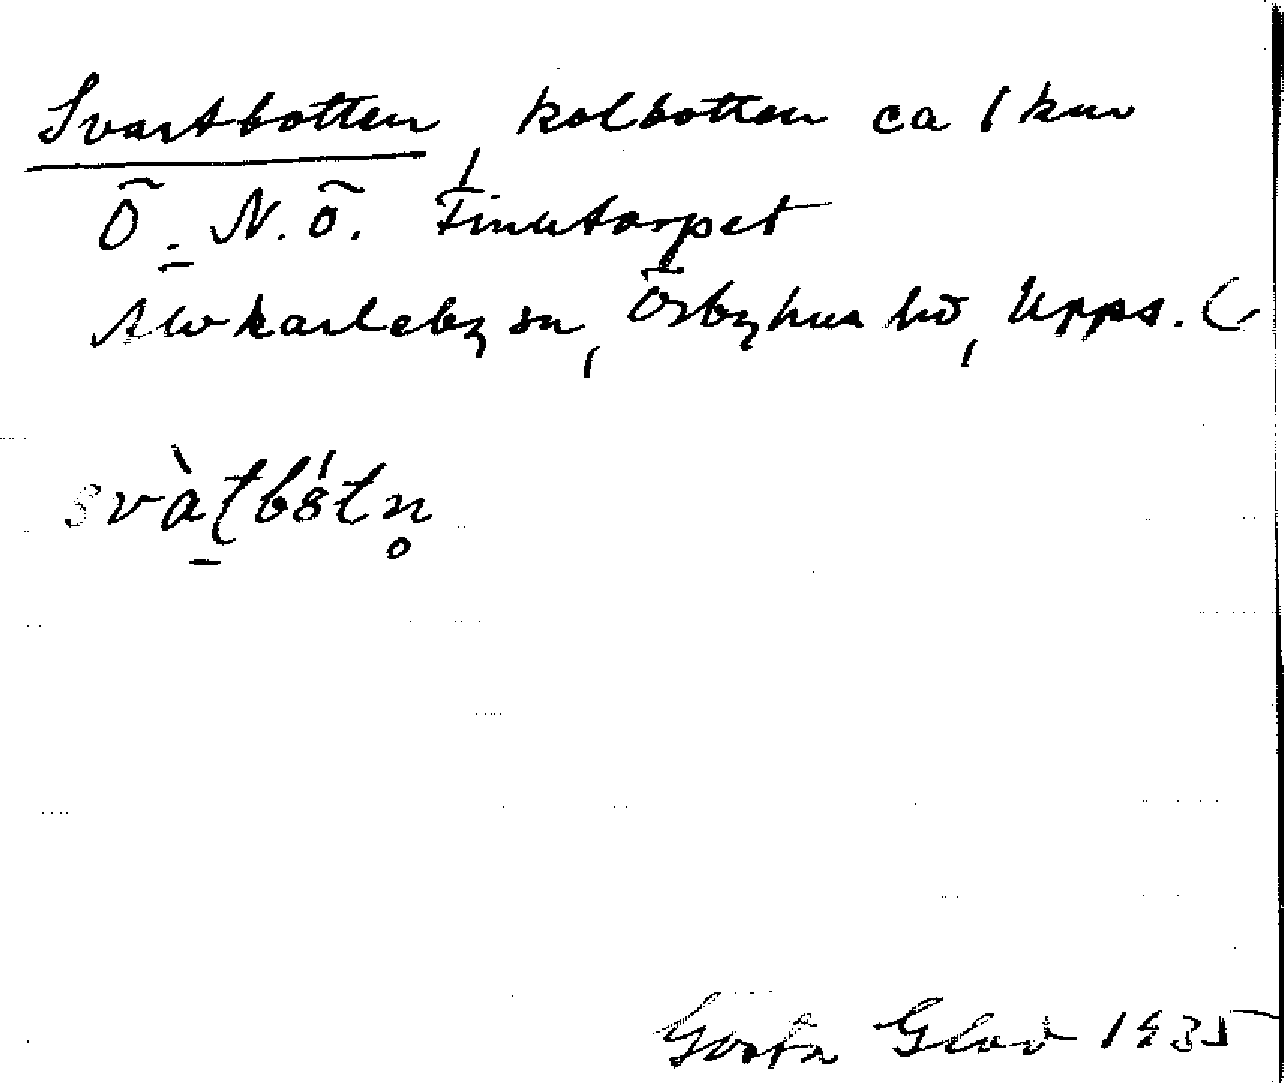 Svartbotten, kolbotten ca 1 km
Ö. N.Ö. Finntorpet
Älvkarleby sn, Örbyhus hd, Upps. L
Gösta Glad 1935